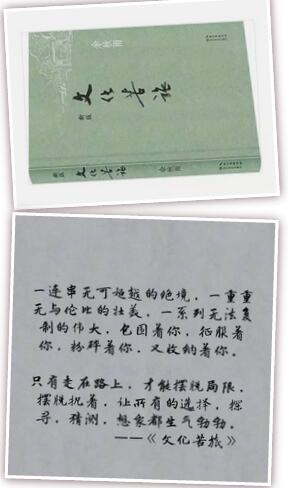 余秋雨
文化苦旅
新版
新版 文化苦旅 余秋雨
一连串无可超越的绝境，一重重
无与伦比的壮美，一系列无法复
制的伟大，包围着你，征服着
你，粉碎着你，又收纳着你。
只有走在路上，才能摆脱局限，
摆脱执着，让所有的选择，探
寻，猜测，想象都生气勃勃。
——《文化苦旅》